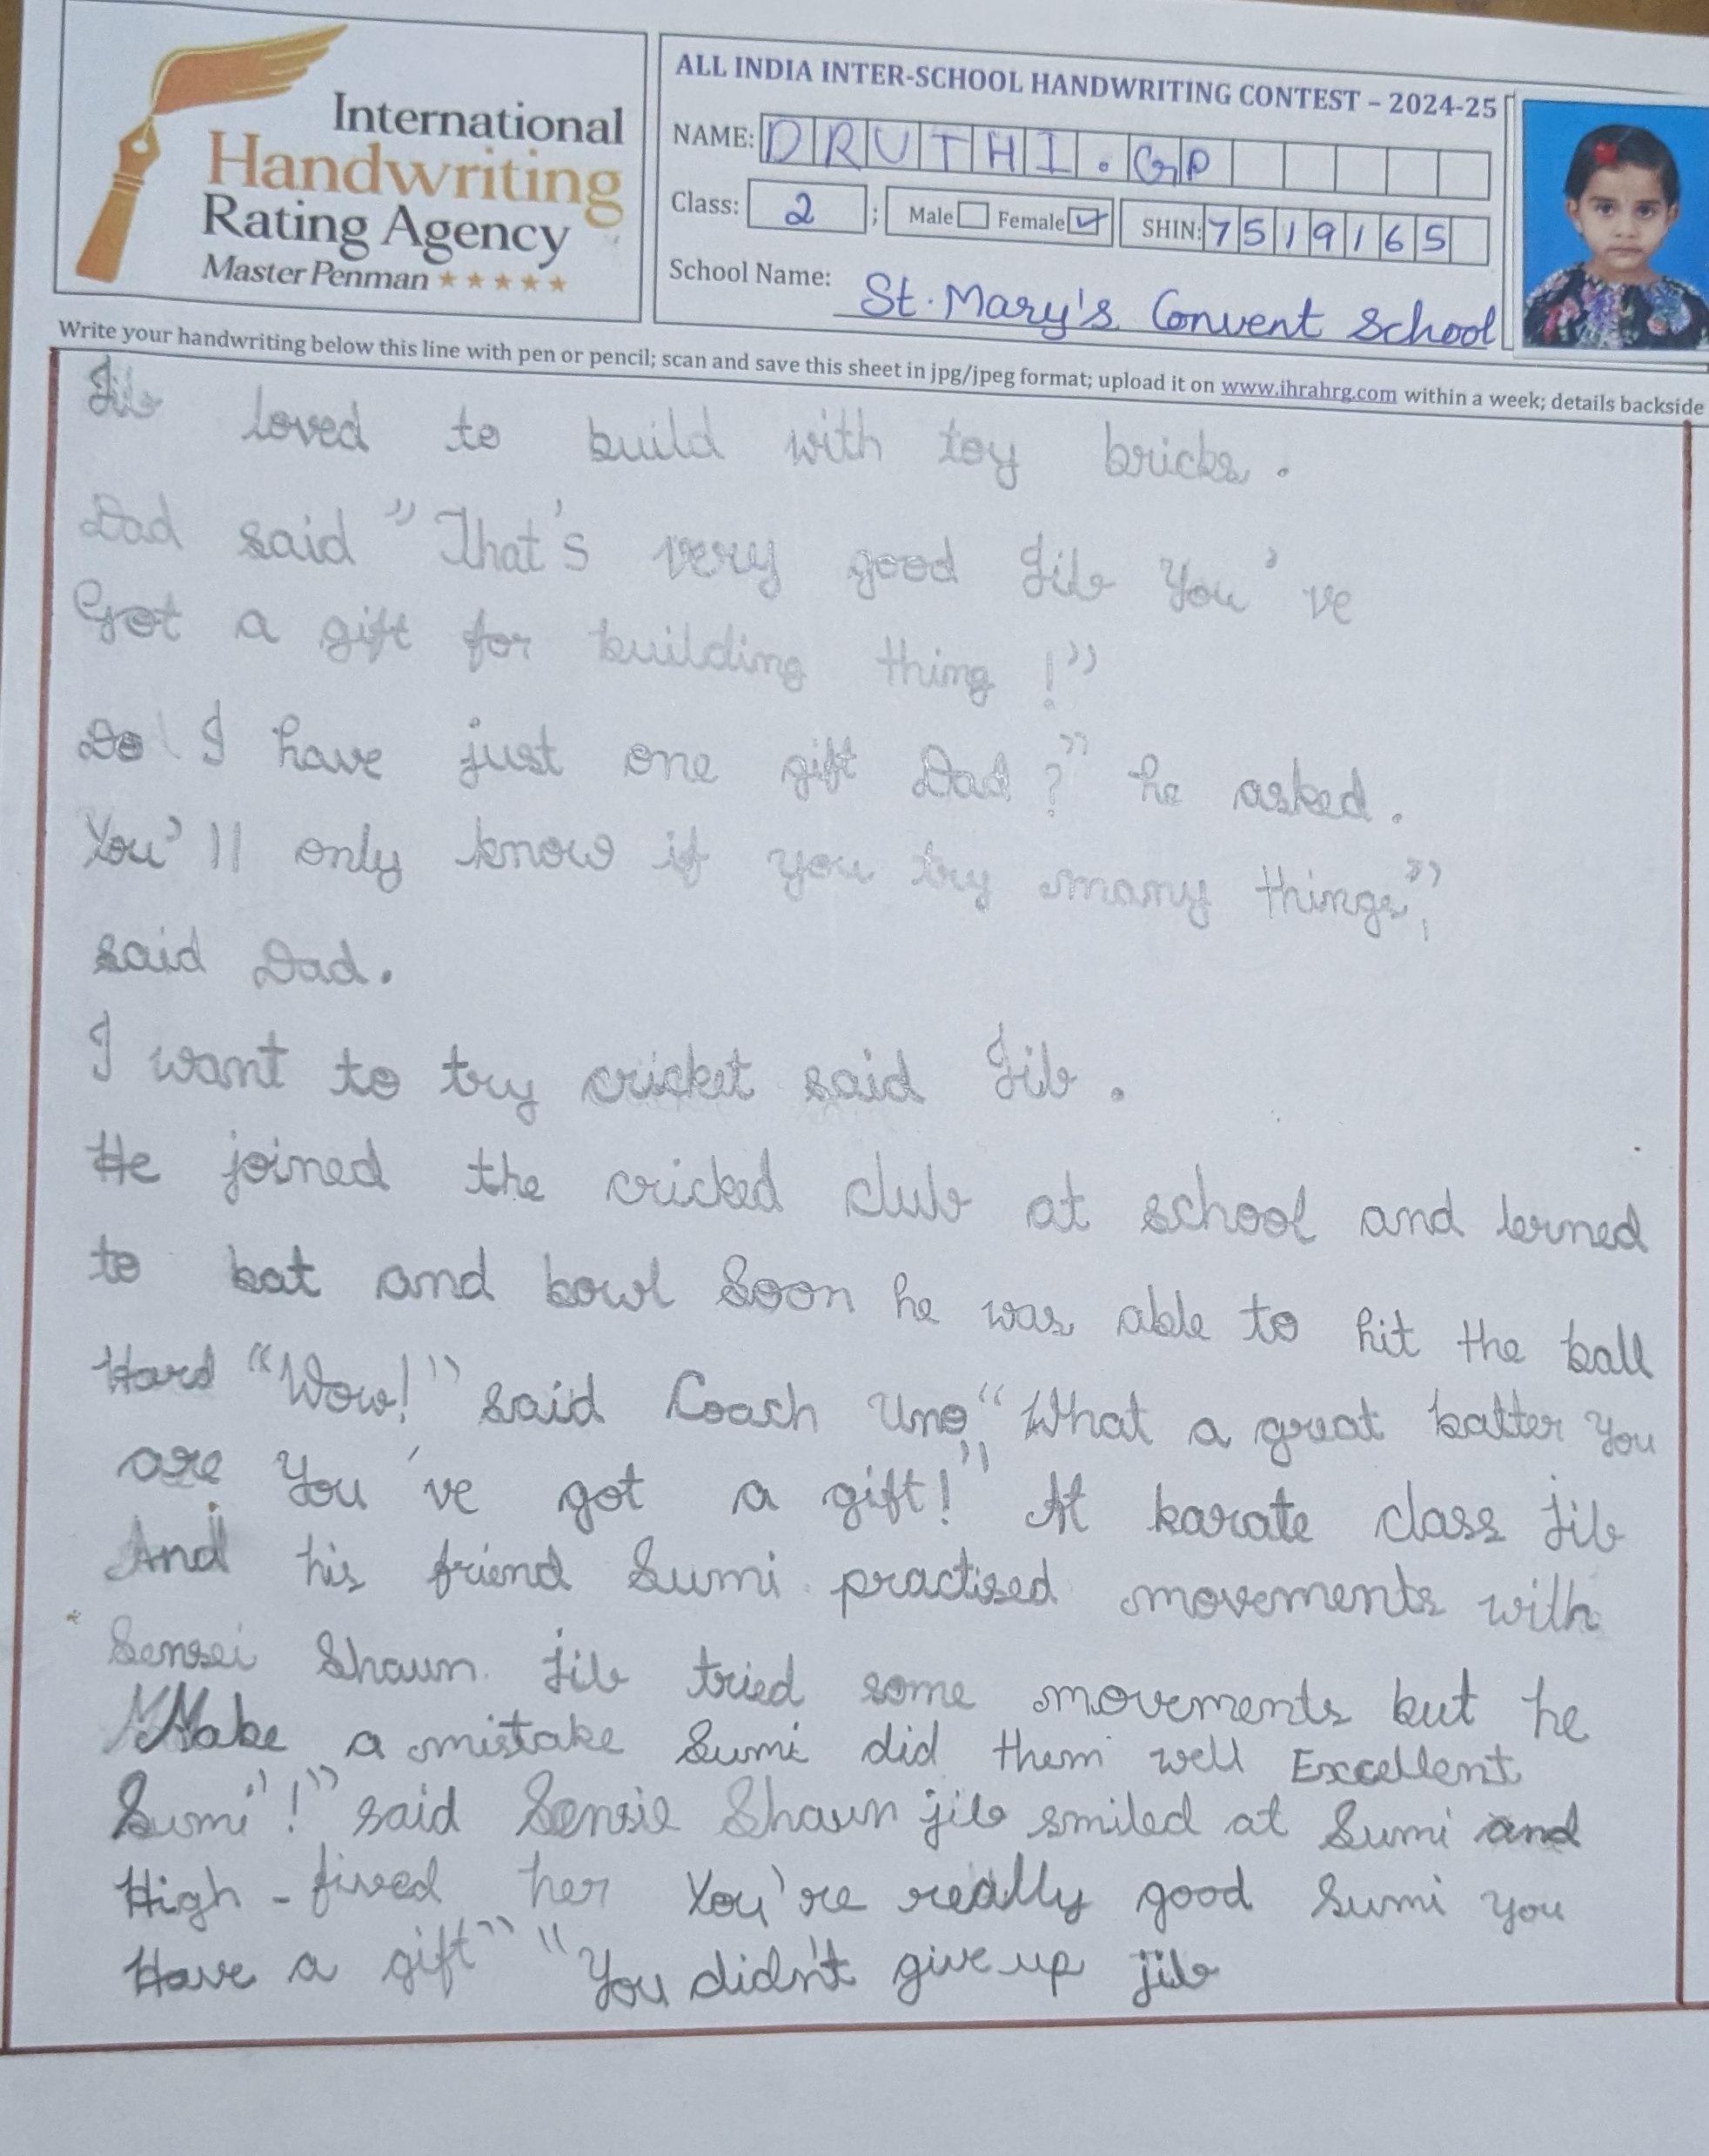 International
Handwriting
Rating Agency
Master Penman ★★★★★
ALL INDIA INTER-SCHOOL HANDWRITING CONTEST – 2024-25
NAME: DRUTHI.GP
Class: 2 ; Male Female ✓ SHIN: 7519165
School Name: St. Mary's Convent School
Write your handwriting below this line with pen or pencil; scan and save this sheet in jpg/jpeg format; upload it on www.ihrahrg.com within a week; details backside
Jib loved to build with toy bricks.
Dad said "That's very good Jib You've
Got a gift for building thing!"
Do I have just one gift Dad?" he asked.
You'll only know if you try many things",
said Dad.
I want to try cricket said Jib.
He joined the cricked club at school and lerned
to bat and bowl Soon he was able to hit the ball
Hard "Wow!" said Coach Uno, "What a great batter you
are You 've got a gift!" At karate class Jib
And his friend Sumi practised movements with
Sensei Shaun. Jib tried some movements but he
Make a mistake Sumi did them well Excellent
Sumi"!" said Sensie Shaun jib smiled at Sumi and
High-fived her You're really good Sumi you
Have a gift" "You didn't give up jib